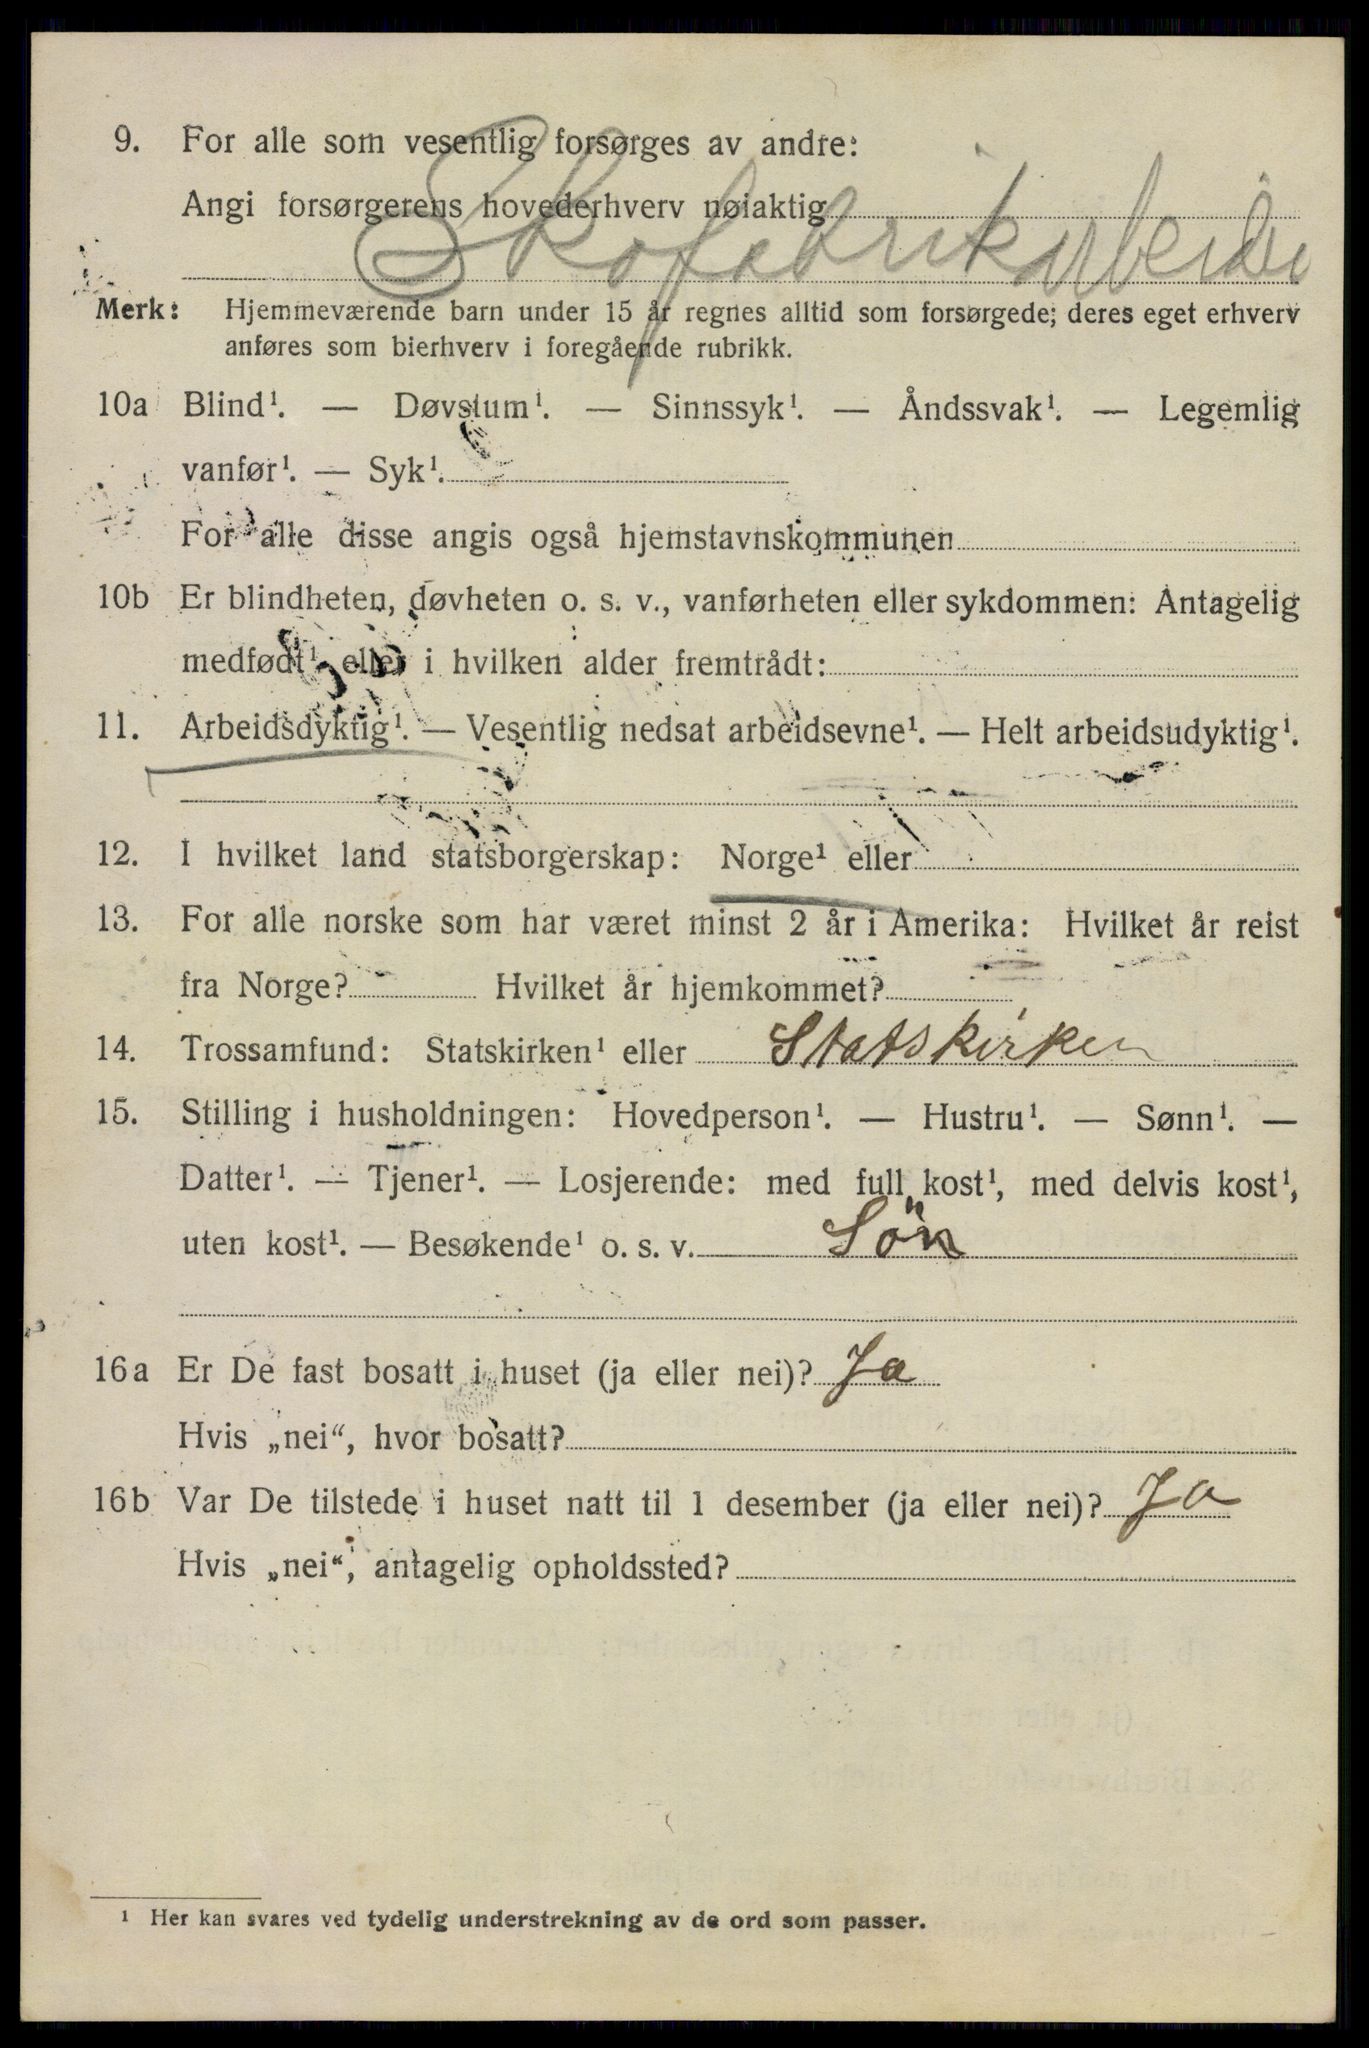 9. For alle som vesentlig forsørges av andre:
Angi forsørgerens hovederhverv nøiaktig
Skofabrikarbeider
Merk: Hjemmeværende barn under 15 år regnes alltid som forsørgede; deres eget erhverv
anføres som bierhverv i foregående rubrikk.
10a Blind¹. — Døvstum¹. — Sinnssyk¹. — Åndssvak¹. — Legemlig
vanfør¹. — Syk¹.
For alle disse angis også hjemstavnskommunen
10b Er blindheten, døvheten o. s. v., vanførheten eller sykdommen: Antagelig
medfødt¹ eller i hvilken alder fremtrådt:
11. Arbeidsdyktig¹. — Vesentlig nedsat arbeidsevne¹. — Helt arbeidsudyktig¹.
12. I hvilket land statsborgerskap: Norge¹ eller
13. For alle norske som har været minst 2 år i Amerika: Hvilket år reist
fra Norge? Hvilket år hjemkommet?
14. Trossamfund: Statskirken¹ eller Statskirken
15. Stilling i husholdningen: Hovedperson¹. — Hustru¹. — Sønn¹. —
Datter¹. — Tjener¹. — Losjerende: med full kost¹, med delvis kost¹,
uten kost¹. — Besøkende¹ o. s. v. Sön
16a Er De fast bosatt i huset (ja eller nei)? Ja
Hvis „nei“, hvor bosatt?
16b Var De tilstede i huset natt til 1 desember (ja eller nei)? Ja
Hvis „nei“, antagelig opholdssted?
¹ Her kan svares ved tydelig understrekning av de ord som passer.